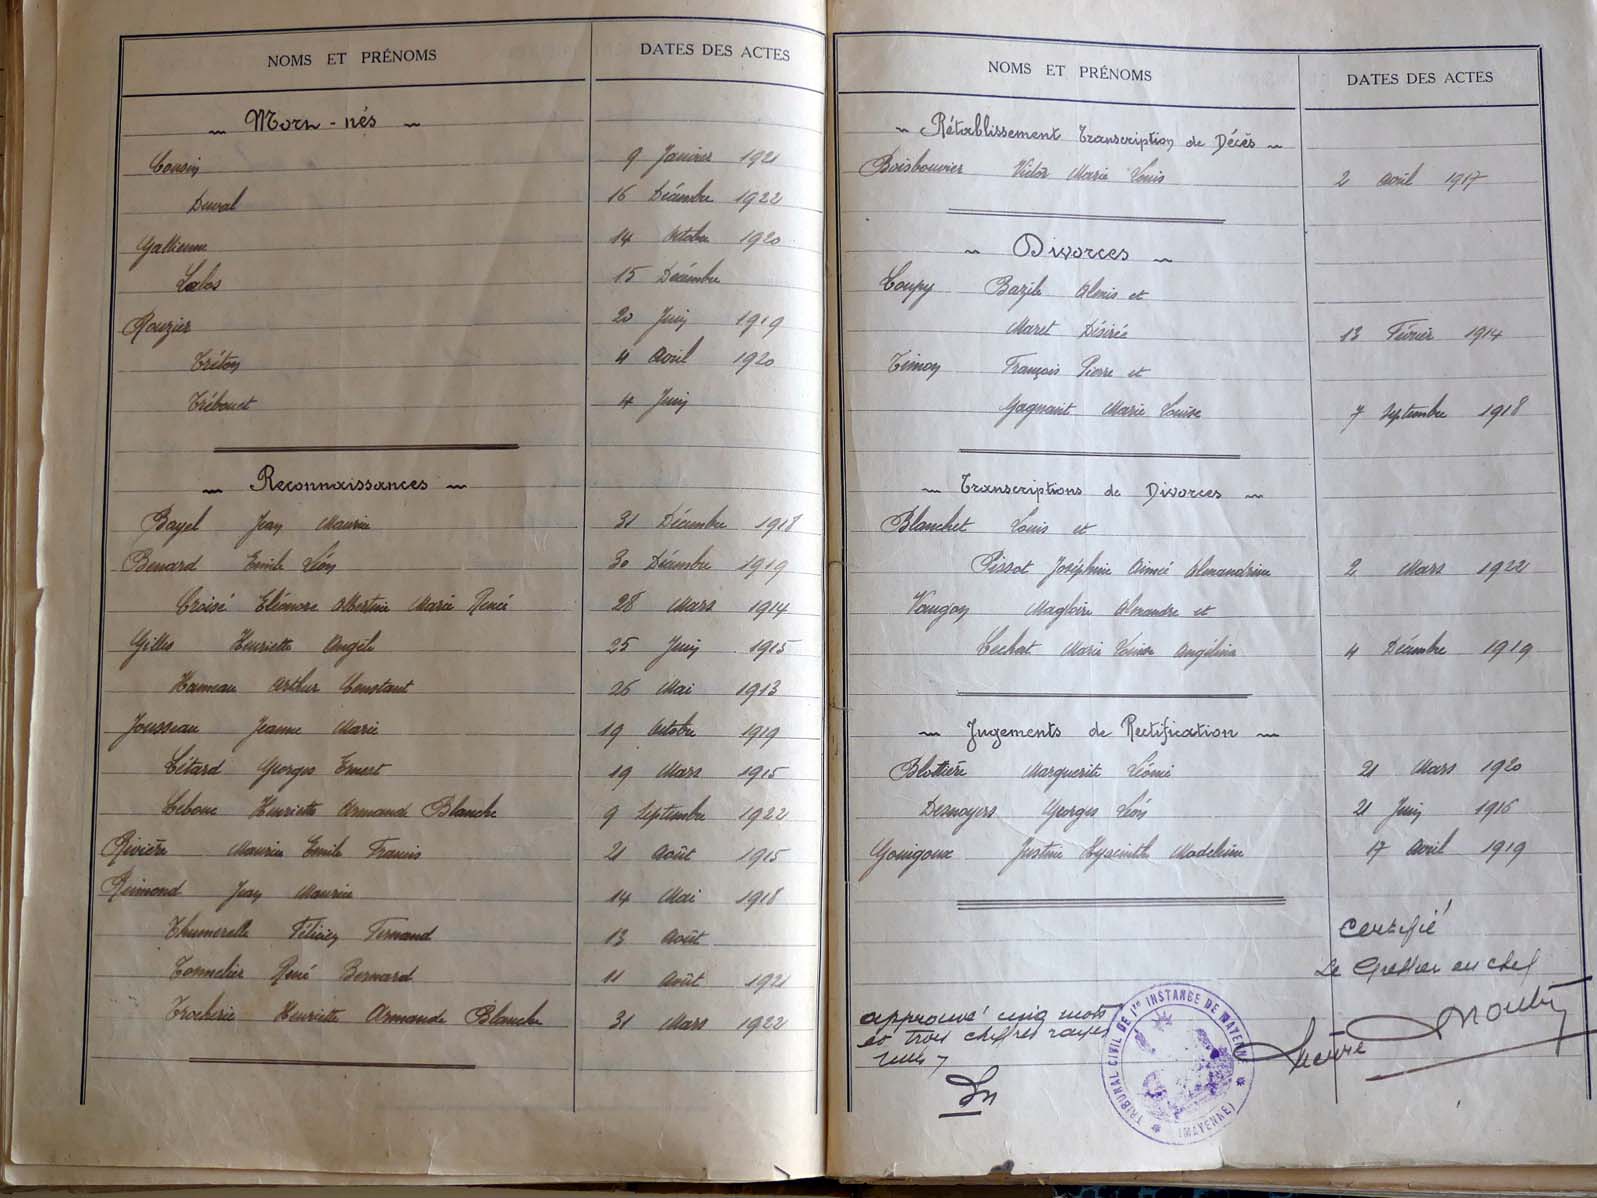 NOMS ET PRÉNOMS DATES DES ACTES
~ Morn-nés ~
Cousin 9 Janvier 1921
Duval 16 Décembre 1922
Gallienne 14 Octobre 1920
Lalos 15 Décembre
Rouzier 20 Juin 1919
Créton 4 Avril 1920
Trébouet 4 Juin
~ Reconnaissances ~
Bayel Jean Maurice 31 Décembre 1918
Benard Emile Léon 30 Décembre 1919
Croisé Eléonore Albertine Marie Renée 28 Mars 1914
Gilles Henriette Angèle 25 Juin 1915
Hameau Arthur Constant 26 Mai 1913
Jousseau Jeanne Marie 19 Octobre 1919
Létard Georges Ernest 19 Mars 1915
Leboue Henriette Armande Blanche 9 Septembre 1922
Rivière Maurice Emile Francis 21 Août 1915
Reimond Jean Maurice 14 Mai 1918
Thumerelle Félicien Fernand 13 Août
Tonnelier René Bernard 11 Août 1921
Trocherie Henriette Armande Blanche 31 Mars 1922
NOMS ET PRÉNOMS DATES DES ACTES
~ Rétablissement Transcription de Décès ~
Boisbouvier Victor Marie Louis 2 Avril 1917
~ Divorces ~
Coupy Bazile Alexis et
Maret Désirée 13 Février 1914
Timon François Pierre et
Gagnant Marie Louise 7 Septembre 1918
~ Transcriptions de Divorces ~
Blanchet Louis et
Pissot Joséphine Aimée Alexandrine 2 Mars 1922
Vaugon Magloire Alexandre et
Lechat Marie Louise Angélina 4 Décembre 1919
~ Jugements de Rectification ~
Blottière Marguerite Léonie 21 Mars 1920
Desnoyers Georges Léon 21 Juin 1916
Gouigoux Justine Hyacinthe Madeleine 17 Avril 1919
certifié
Le Greffier en chef
approuvé cinq mots
et trois chiffres rayés
nuls
TRIBUNAL CIVIL DE 1re INSTANCE DE MAYENNE
(MAYENNE)